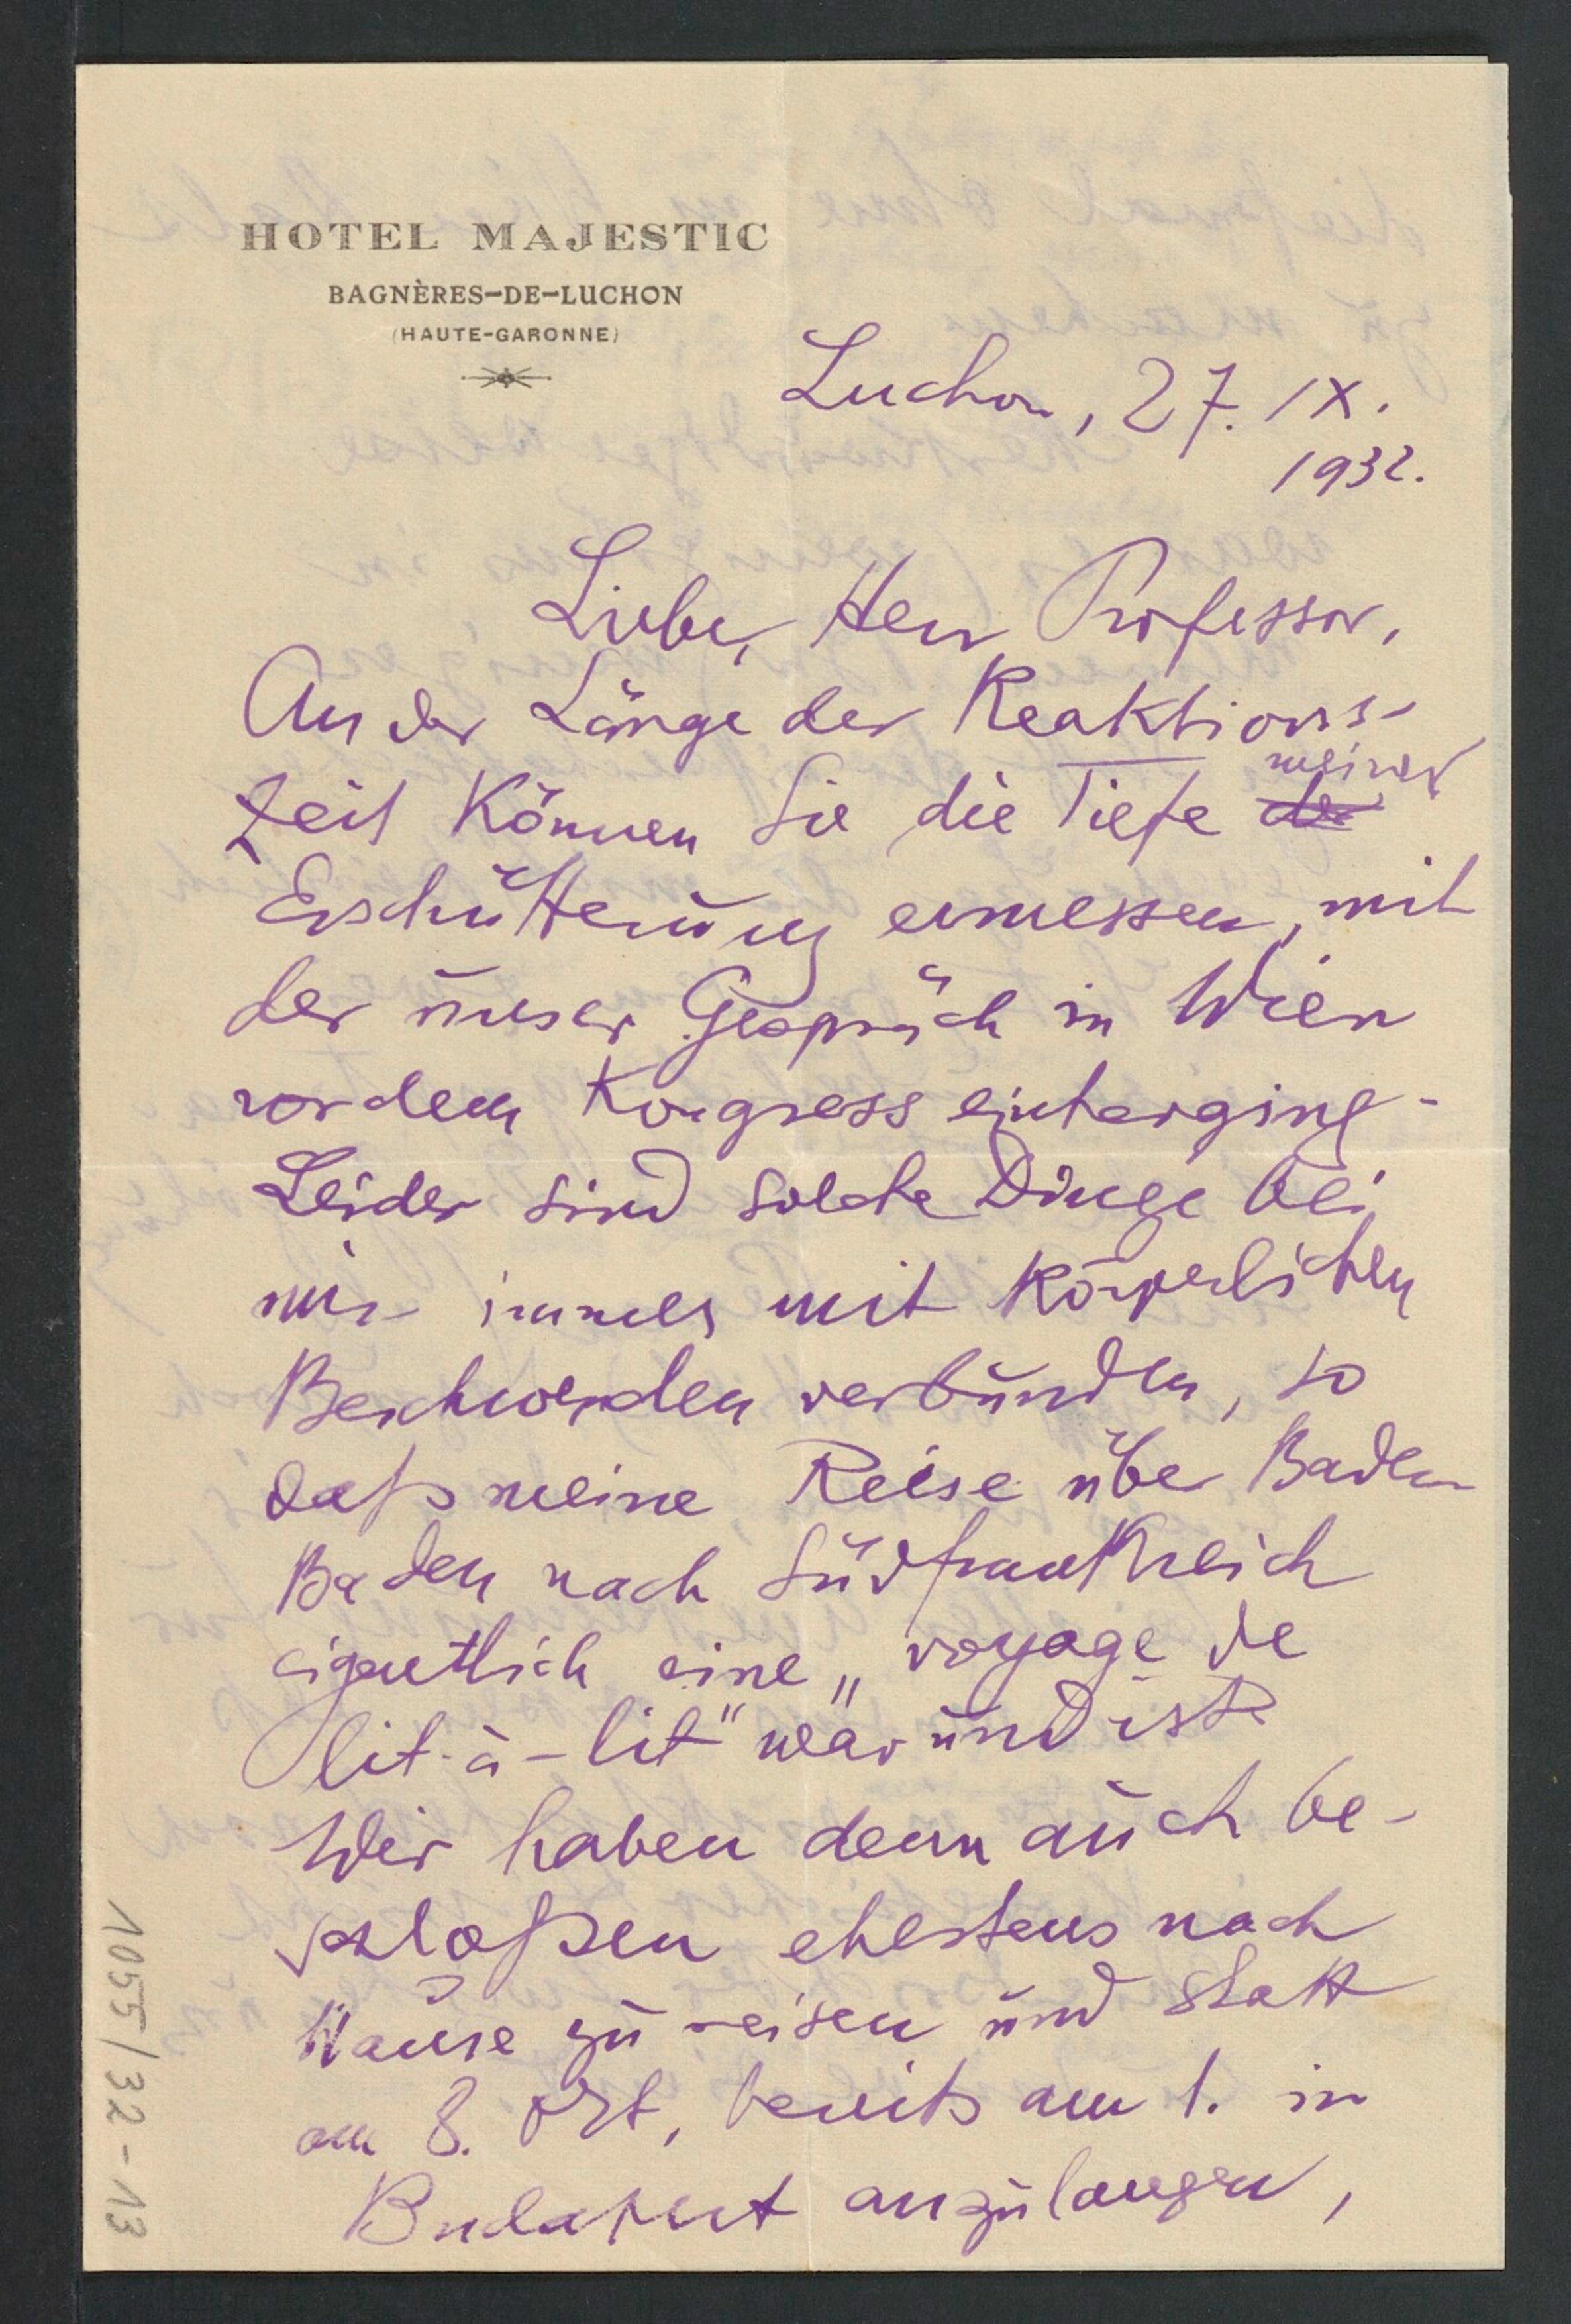 HOTEL MAJESTIC
BAGNÈRES-DE-LUCHON
(HAUTE-GARONNE)
Luchon, 27. IX.
1932.
Lieber Herr Professor,
An der Länge der Reaktions-
zeit können Sie die Tiefe der meiner
Erschütterung ermessen, mit
der unser Gespräch in Wien
vor dem Kongress einherging-
Leider sind solche Dinge bei
mir immer mit körperlichen
Beschwerden verbunden, so
daß meine Reise über Baden
Baden nach Südfrankreich
eigentlich eine „voyage de
lit-à-lit" war und ist.
Wir haben denn auch be-
schloßen ehestens nach
Hause zu reisen und statt
am 8. Okt, bereits am 1. in
Budapest anzulangen,
1055/32-13